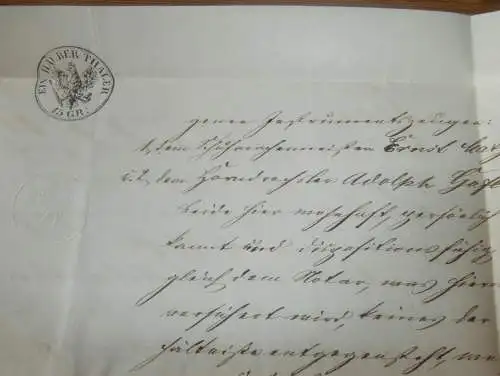 EIN HALBER THALER
15 GR:
genen Instrumentszeugen:
1, dem Schuhmachermeister Ernst
u. 2, dem Horndrechsler Adolph
beide hier wohnhaft, persönlich
kannt und dispositionsfähig
gleich dem Notar, was hierm
versichert wird, keines der
hältnisse entgegensteht, we